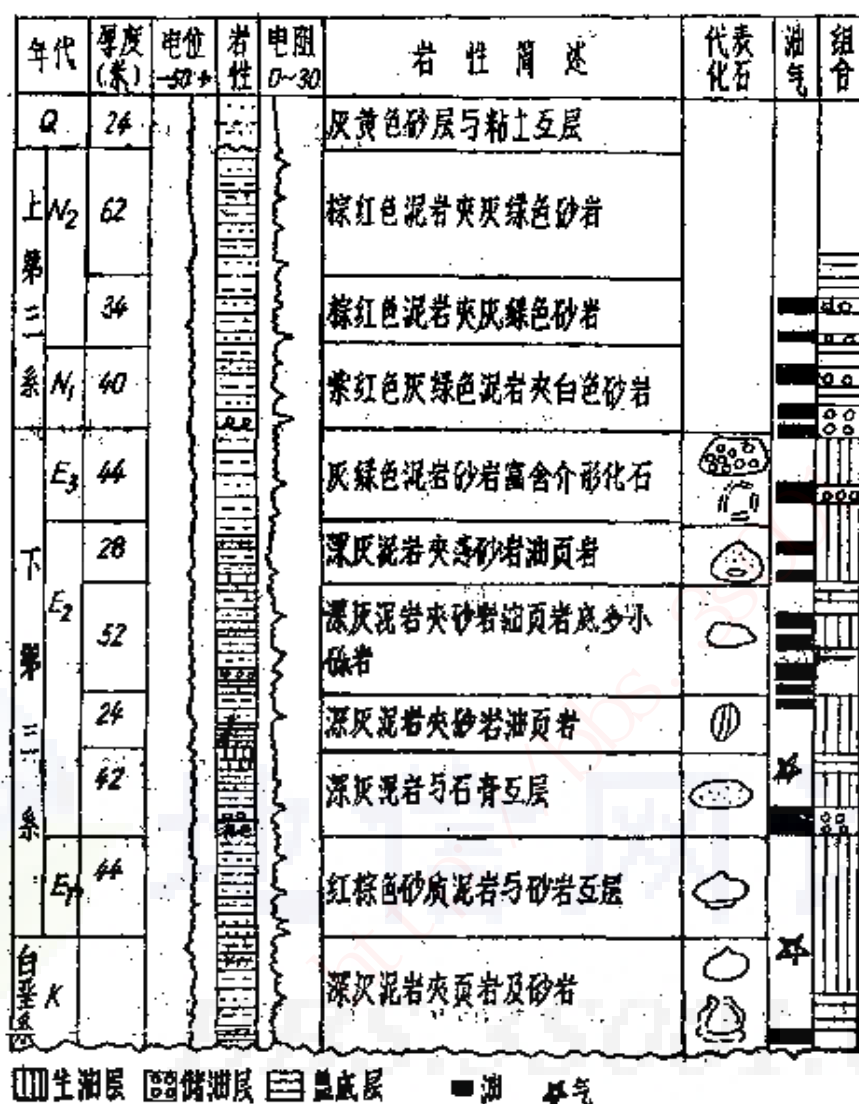 年代 厚度(米) 电位 -50+ 岩性 电阻 0~30 岩性简述 代表化石 油气 组合
Q 24 灰黄色砂层与粘土互层
上第三系
N2 62 棕红色泥岩夹灰绿色砂岩
34 棕红色泥岩夹灰绿色砂岩
N1 40 紫红色灰绿色泥岩夹白色砂岩
下第三系
E3 44 灰绿色泥岩砂岩富含介形化石
E2 28 深灰泥岩夹薄砂岩油页岩
52 深灰泥岩夹砂岩油页岩底多小
砾岩
24 深灰泥岩夹砂岩油页岩
42 深灰泥岩与石膏互层
E1 44 红棕色砂质泥岩与砂岩互层
白垩系 K 深灰泥岩夹页岩及砂岩
生油层 储油层 盖底层 油 气